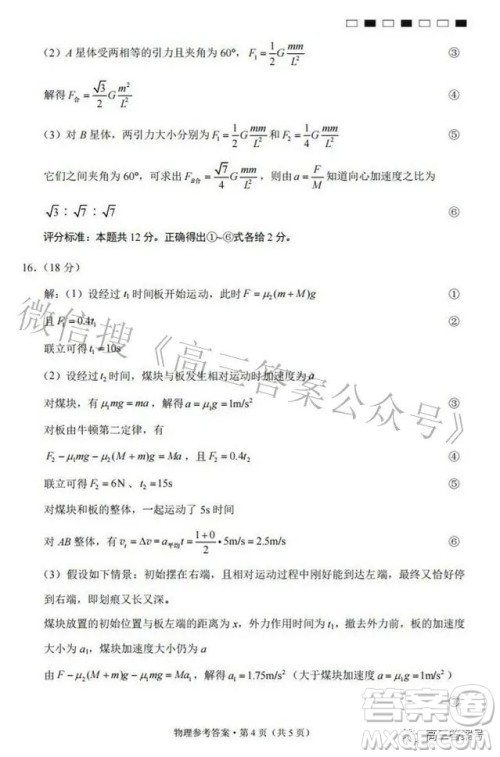 （2）A 星体受两相等的引力且夹角为 60°，F₁=\frac{1}{2}G\frac{mm}{L²} ③
解得 F合=\frac{\sqrt{3}}{2}G\frac{m²}{L²} ④
（3）对 B 星体，两引力大小分别为 F₁=\frac{1}{2}G\frac{mm}{L²} 和 F₂=\frac{1}{4}G\frac{mm}{L²} ⑤
它们之间夹角为 60°，可求出 F_{B合}=\frac{\sqrt{7}}{4}G\frac{mm}{L²}，最后则由 a=\frac{F}{M} 知道向心加速度之比为
√3：√7：√7 ⑥
评分标准：本题共 12 分。正确得出①~⑥式各给 2 分。
16．（18 分）
解：（1）设经过 t₁ 时间板开始运动，此时 F=μ₂(m+M)g ①
且 F₁=0.4t₁ ②
联立可得 t₁=10s ③
（2）设经过 t₂ 时间，煤块与板发生相对运动时加速度为 a
对煤块，有 μ₁mg=ma，解得 a=μ₁g=1m/s² ④
对板由牛顿第二定律，有
F₂-μ₁mg-μ₂(M+m)g=Ma，且 F₂=0.4t₂
联立可得 F₂=6N、t₂=15s ⑤
对煤块和板的整体，一起运动了 5s 时间
对 AB 整体，有 v₁=Δv=a平均t=\frac{1+0}{2}·5m/s=2.5m/s ⑥
（3）假设如下情景：初始摆在右端，且相对运动过程中刚好能到达左端，而最终又恰好停
到右端，即划痕又长又深。
煤块放置的初始位置与板左端的距离为 x，外力作用的时间为 t₁，撤去外力前，板的加速度
大小为 a₁，煤块的加速度大小仍为 a
由 F-μ₂(M+m)g-μ₁mg=Ma₁，解得 a₁=1.75m/s²（大于煤块加速度 a=μ₁g=1m/s²）
物理参考答案·第 4 页（共 5 页）
微信搜《高三答案公众号》
答案圈
高三答案号